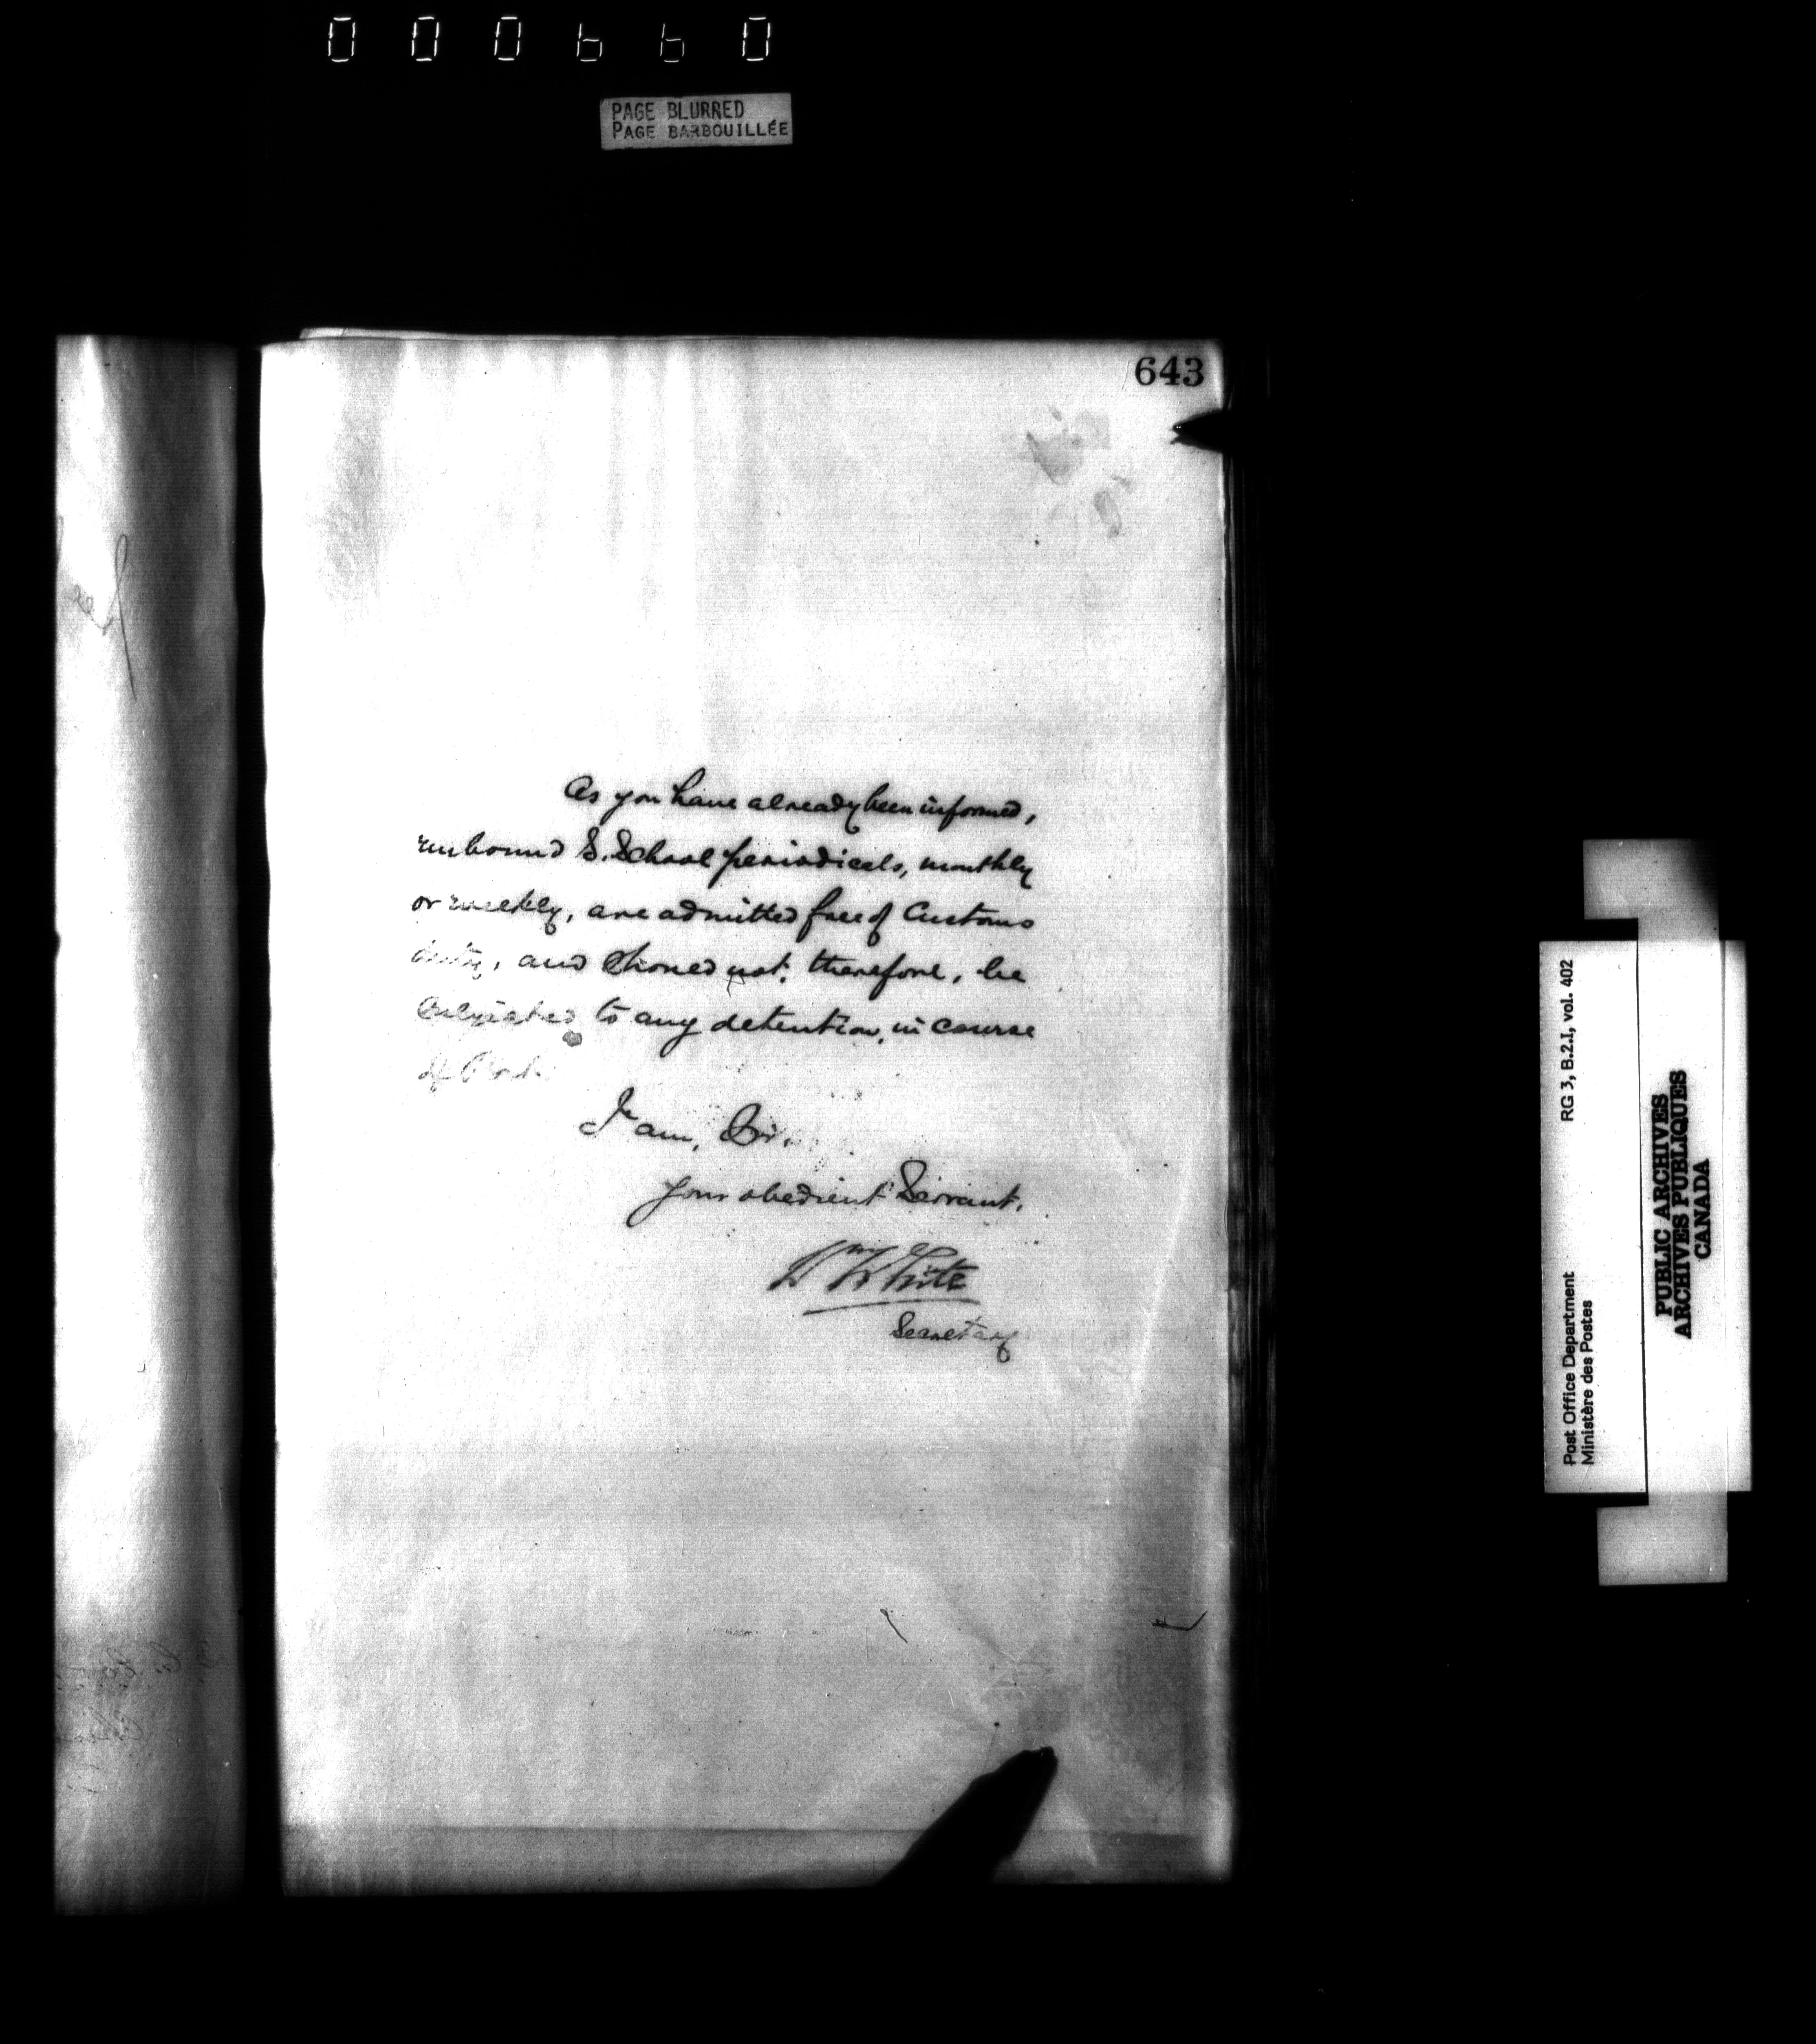 PAGE BLURRED
PAGE BARBOUILLÉE
643
As you have already been informed,
unbound S. School periodicals, monthly
or weekly, are admitted free of Customs
duty, and should not, therefore, be
subjected to any detention, in course
of Post.
I am, Sir,
Your obedient Servant,
Wm White
Secretary
Post Office Department
Ministère des Postes
RG 3, B.2.I, vol. 402
PUBLIC ARCHIVES
ARCHIVES PUBLIQUES
CANADA